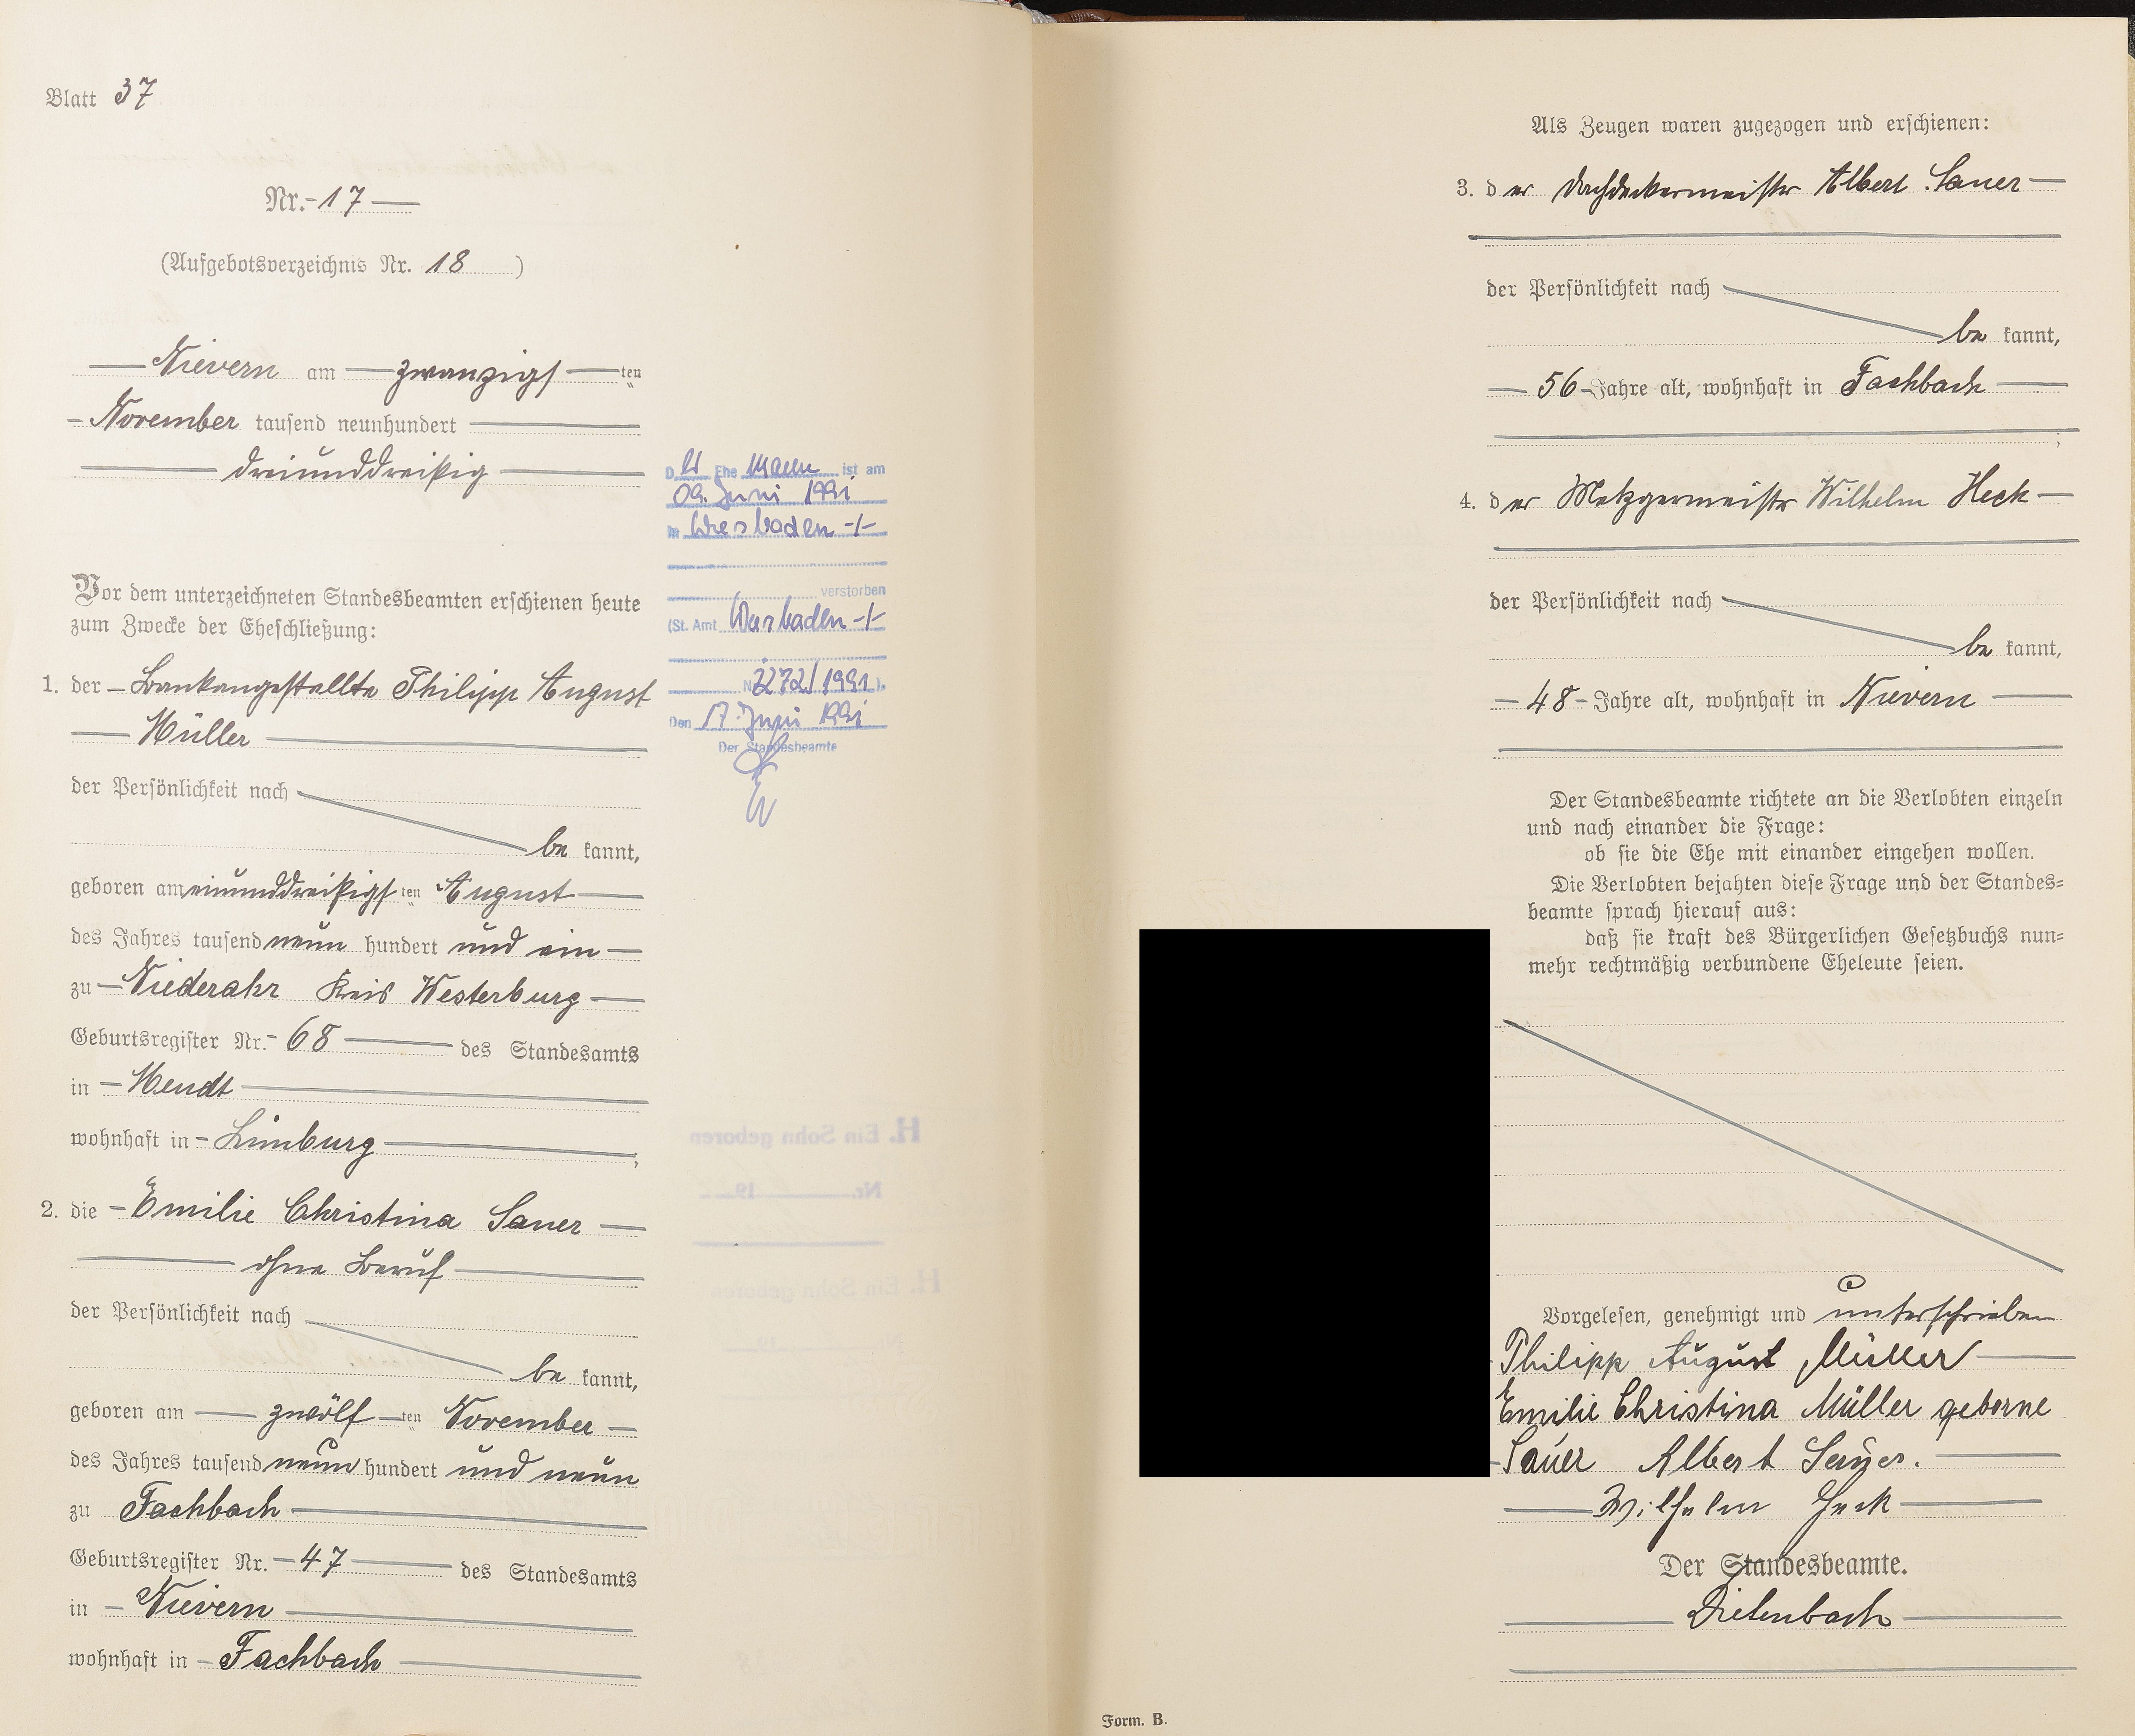 Blatt 37
Nr. 17
(Aufgebotsverzeichnis Nr. 18)
Nievern am zwanzigsten
November tausend neunhundert
dreiunddreißig
Vor dem unterzeichneten Standesbeamten erschienen heute
zum Zwecke der Eheschließung:
1. der Bankangestellte Philipp August
Müller
der Persönlichkeit nach
be kannt,
geboren am einunddreißigsten August
des Jahres tausend neun hundert und ein
zu Niederahr Kreis Westerburg
Geburtsregister Nr. 68 des Standesamts
in Meudt
wohnhaft in Limburg;
2. die Emilie Christina Sauer
ohne Beruf
der Persönlichkeit nach
be kannt,
geboren am zwölften November
des Jahres tausend neun hundert und neun
zu Fachbach
Geburtsregister Nr. 47 des Standesamts
in Nievern
wohnhaft in Fachbach
Der Ehemann ist am
09. Juni 1991
in Wiesbaden
verstorben
(St. Amt Wiesbaden
Nr. 2272/1991).
Den 17. Juni 1991
Der Standesbeamte
H. Ein Sohn geboren
Nr. 19
H. Ein Sohn geboren
Als Zeugen waren zugezogen und erschienen:
3. der Dachdeckermeister Albert Sauer
der Persönlichkeit nach
be kannt,
56 Jahre alt, wohnhaft in Fachbach
;
4. der Metzgermeister Wilhelm Heck
der Persönlichkeit nach
be kannt,
48 Jahre alt, wohnhaft in Nievern
Der Standesbeamte richtete an die Verlobten einzeln
und nach einander die Frage:
ob sie die Ehe mit einander eingehen wollen.
Die Verlobten bejahten diese Frage und der Standes=
beamte sprach hierauf aus:
daß sie kraft des Bürgerlichen Gesetzbuchs nun=
mehr rechtmäßig verbundene Eheleute seien.
Vorgelesen, genehmigt und unterschrieben
Philipp August Müller
Emilie Christina Müller geborne
Sauer Albert Sauer.
Wilhelm Heck
Der Standesbeamte.
Dietenbach
Form. B.